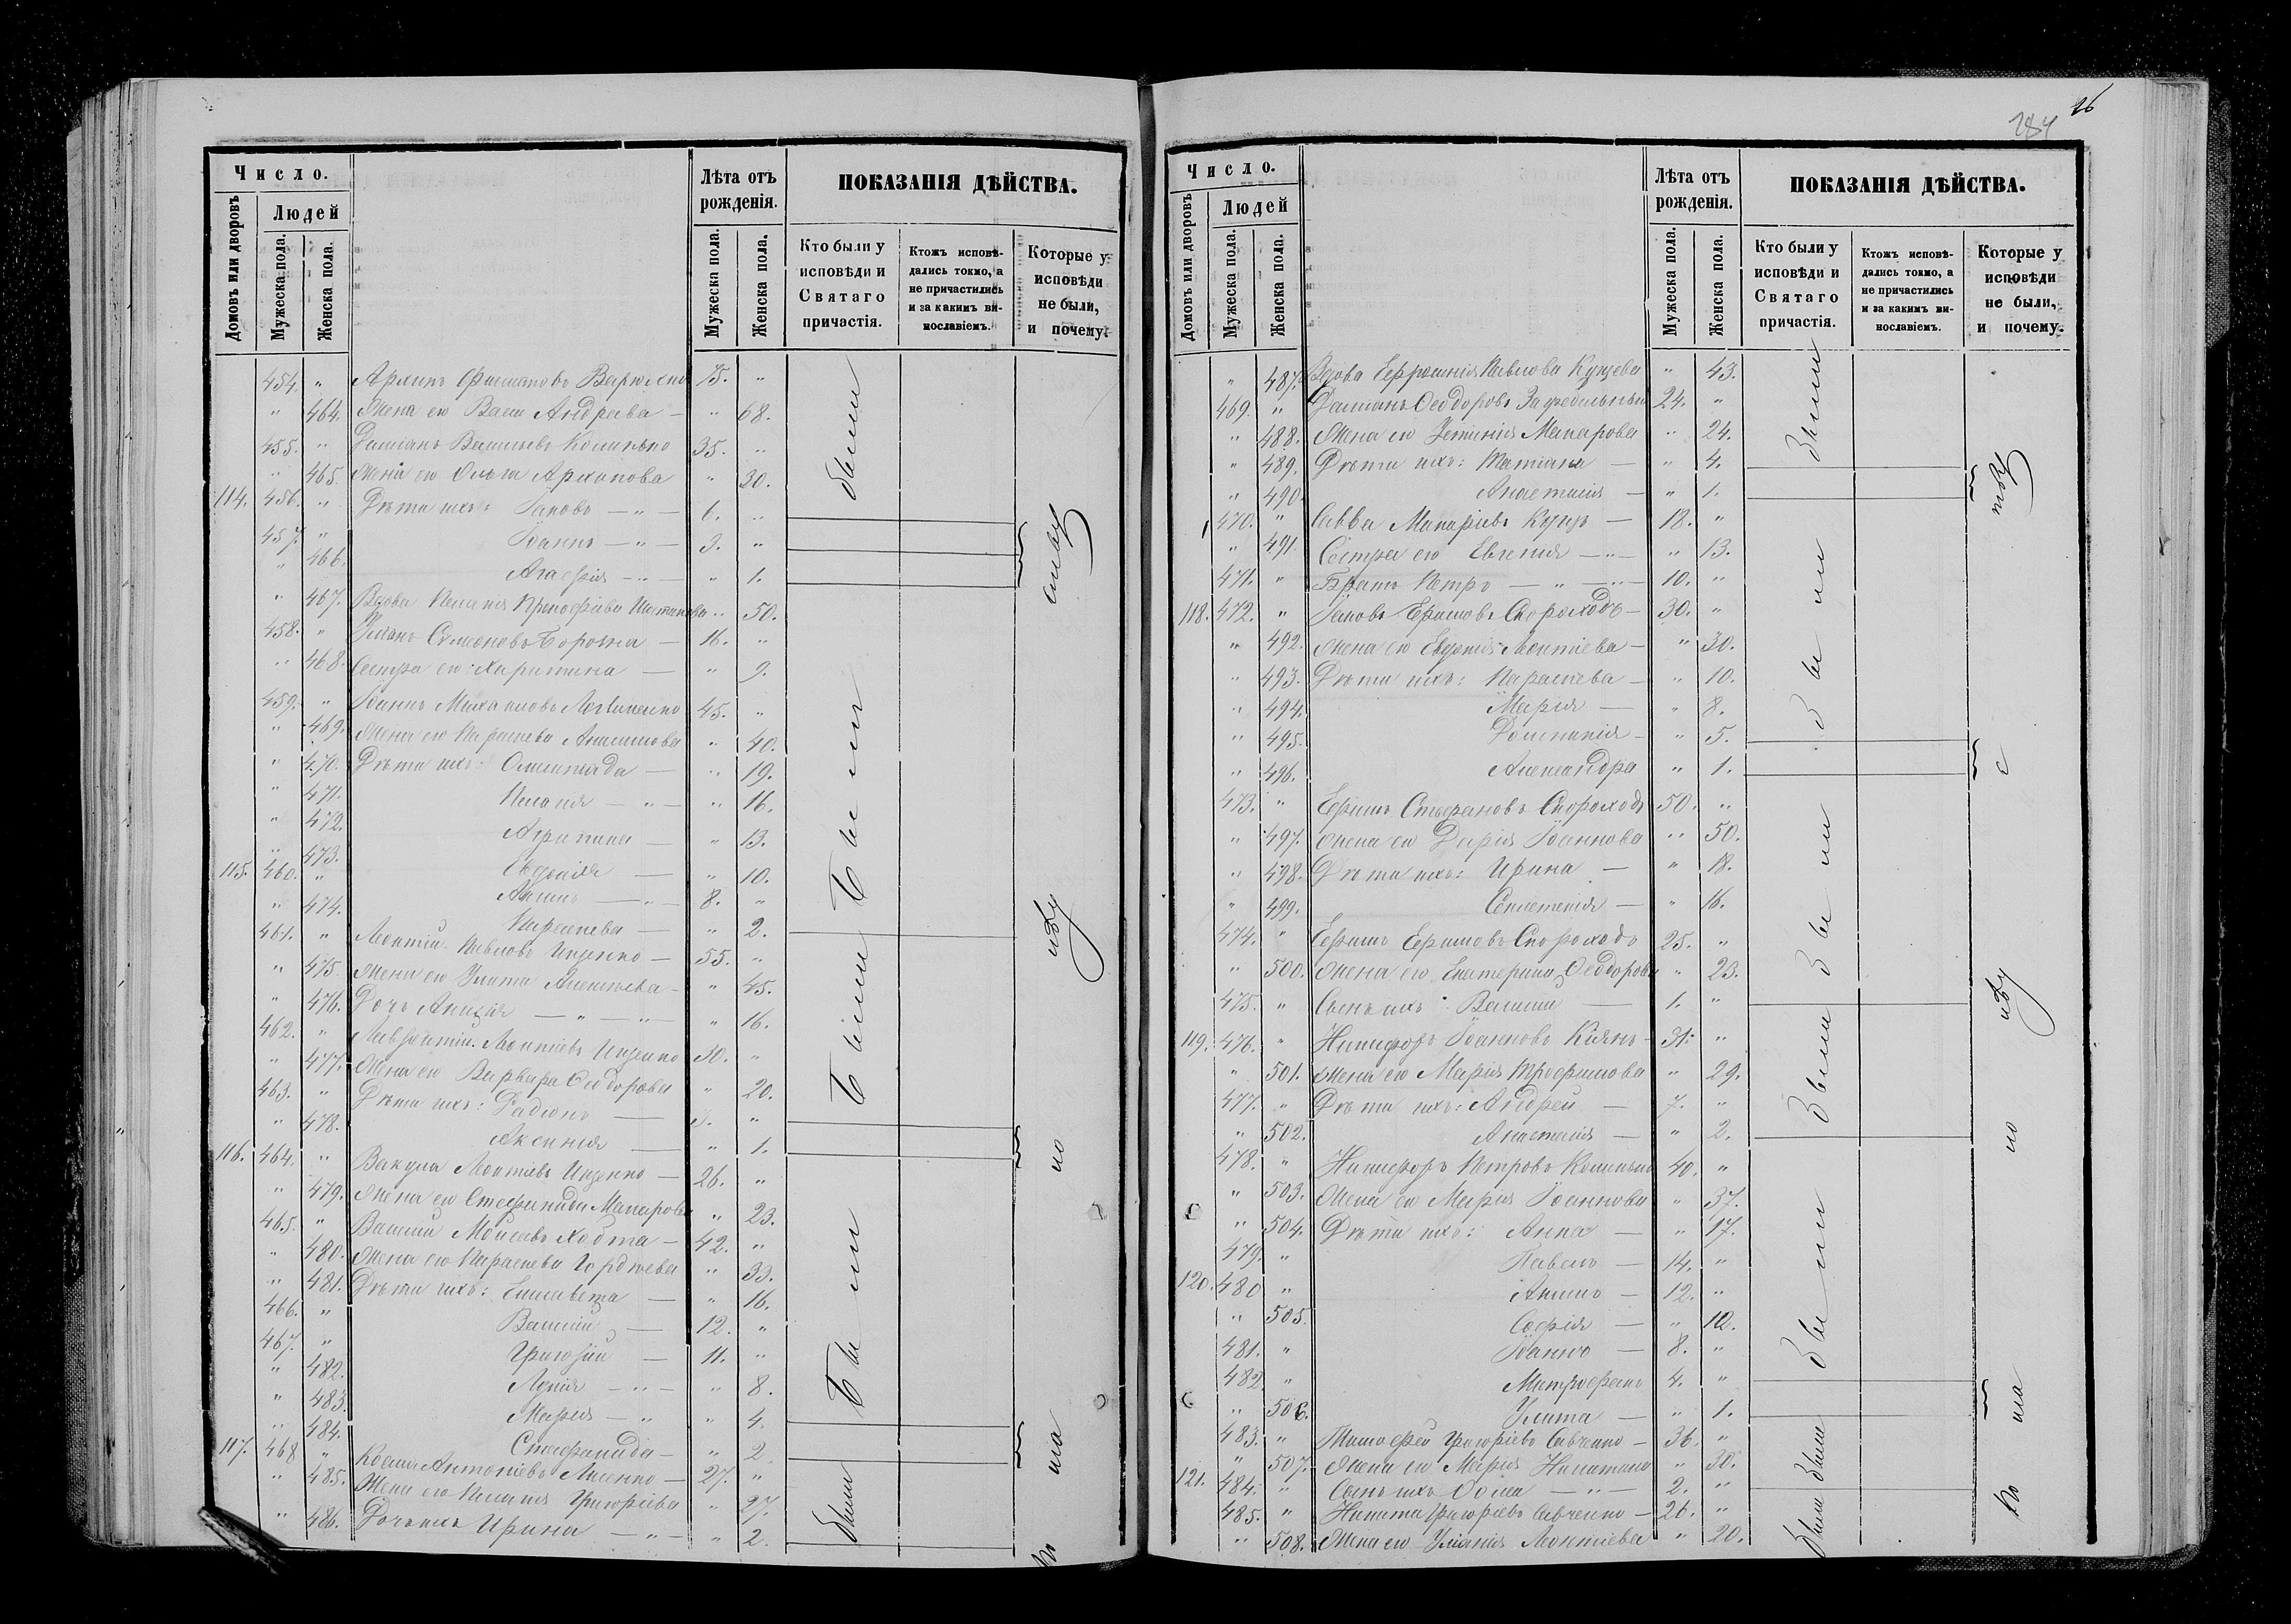 26
284
Число.
Домовъ или дворовъ
Людей
Мужеска пола.
Женска пола.
Лѣта отъ рожденія.
Мужеска пола.
Женска пола.
ПОКАЗАНІЯ ДѢЙСТВА.
Кто были у исповѣди и Святаго причастія.
Ктожъ исповѣдались токмо, а не причастились и за какимъ винословіемъ.
Которые у исповѣди не были, и почему.
454. " Архипъ 75. "
" 464. Жена его Васса Андреева — " 68.
455. " Даміанъ Васильевъ 35. "
" 465. Жена его Ольга Архипова " 30.
114. 456. " Дѣти ихъ: Іаковъ — " — 6. "
457. " Іоаннъ — " — 3. "
" 466. Агафія — " — " 1.
" 467. Вдова Пелагія Прокофіева " 50.
458. " Уліанъ Симеоновъ 16. "
" 468. Сестра его Харитина — " 9.
459. " Іоаннъ Михаиловъ Литвиненко 45. "
" 469. Жена его Параскева Анисимова " 40.
" 470. Дѣти ихъ: Олимпіада — " 19.
" 471. Пелагія — " — " 16.
" 472. Агрипина — " 13.
" 473. Евдокія — " 10.
115. 460. " Акимъ — " — 8. "
" 474. Параскева — " 2.
461. " Леонтій Павловъ Ищенко — 55. "
" 475. Жена его Улита Алексѣева — " 45.
" 476. Дочь Аникія — " — " — " 16.
462. " Лаврентій Леонтіевъ Ищенко 30. "
" 477. Жена его Варвара Ѳеодорова " 20.
463. " Дѣти ихъ: Радіонъ — 3. "
" 478. Аксинія — " 1.
116. 464. " Вакула Леонтіевъ Ищенко — 26. "
" 479. Жена его Стефанида Макарова " 23.
465. " Василій Моисеевъ Ходта — 42. "
" 480. Жена его Параскева Гордѣева " 33.
" 481. Дѣти ихъ: Елисавета — " 16.
466. " Василій — 12. "
467. " Григорій — 11. "
" 482. Лукія — " — " 8.
" 483. Марія — " " 4.
" 484. Стефанида — " 2.
117. 468 " Косма Антоніевъ — 27. "
" 485. Жена его Пелагія Григоріева " 27.
" 486. Дочь ихъ Ирина — " — " 2.
были
были
были
были
были
Число.
Домовъ или дворовъ
Людей
Мужеска пола.
Женска пола.
Лѣта отъ рожденія.
Мужеска пола.
Женска пола.
ПОКАЗАНІЯ ДѢЙСТВА.
Кто были у исповѣди и Святаго причастія.
Ктожъ исповѣдались токмо, а не причастились и за какимъ винословіемъ.
Которые у исповѣди не были, и почему.
" 487. Вдова Ефросинія Павлова Куцева " 43.
469. " Даміанъ Ѳеодоровъ 24. "
" 488. Жена его Устинія Макарова " 24.
" 489. Дѣти ихъ: Татіана — " 4.
" 490. Анастасія — " 1.
470. " Савва Макаріевъ Куцъ — 18. "
" 491. Сестра его Евгенія — " — " 13.
471. " Братъ Петръ — " — " — 10. "
118. 472. " Іаковъ Ефимовъ Скороходъ — 30. "
" 492. Жена его Евдокія Леонтіева — " 30.
" 493. Дѣти ихъ: Параскева — " 10.
" 494. Марія — " 8.
" 495. Домникія — " 5.
" 496. Александра " 1.
473. " Ефимъ Стефановъ Скороходъ 50. "
" 497. Жена его Дарія Іоаннова " 50.
" 498. Дѣти ихъ: Ирина — " 18.
" 499. — " 16.
474. " Ефимъ Ефимовъ Скороходъ 25. "
" 500. Жена его Екатерина Ѳеодорова " 23.
475. " Сынъ ихъ: Василій — 1. "
119. 476. " Никифоръ Іоанновъ Кіянъ — 31. "
" 501. Жена его Марія Трофимова " 29.
477. " Дѣти ихъ: Андрей — 7. "
" 502. Анастасія — " 2.
478. " Никифоръ Петровъ 40. "
" 503. Жена его Марія Іоаннова " 37.
" 504. Дѣти ихъ: Анна — " 17.
479. " Павелъ — 14. "
120. 480 " Акимъ — 12. "
" 505. Софія — " 10.
481. " Іоаннъ — 8. "
482 " Митрофанъ 4. "
" 506. Улита — " 1.
483. " Тимофей Григоріевъ Савченко — 36. "
" 507. Жена его Марія " 30.
121. 484. " Сынъ ихъ Ѳома — " — 2. "
485. " Никита Григоріевъ Савченко — 26. "
" 508. Жена его Уліанія Леонтіева " 20.
были
были
были
были
были
были
были